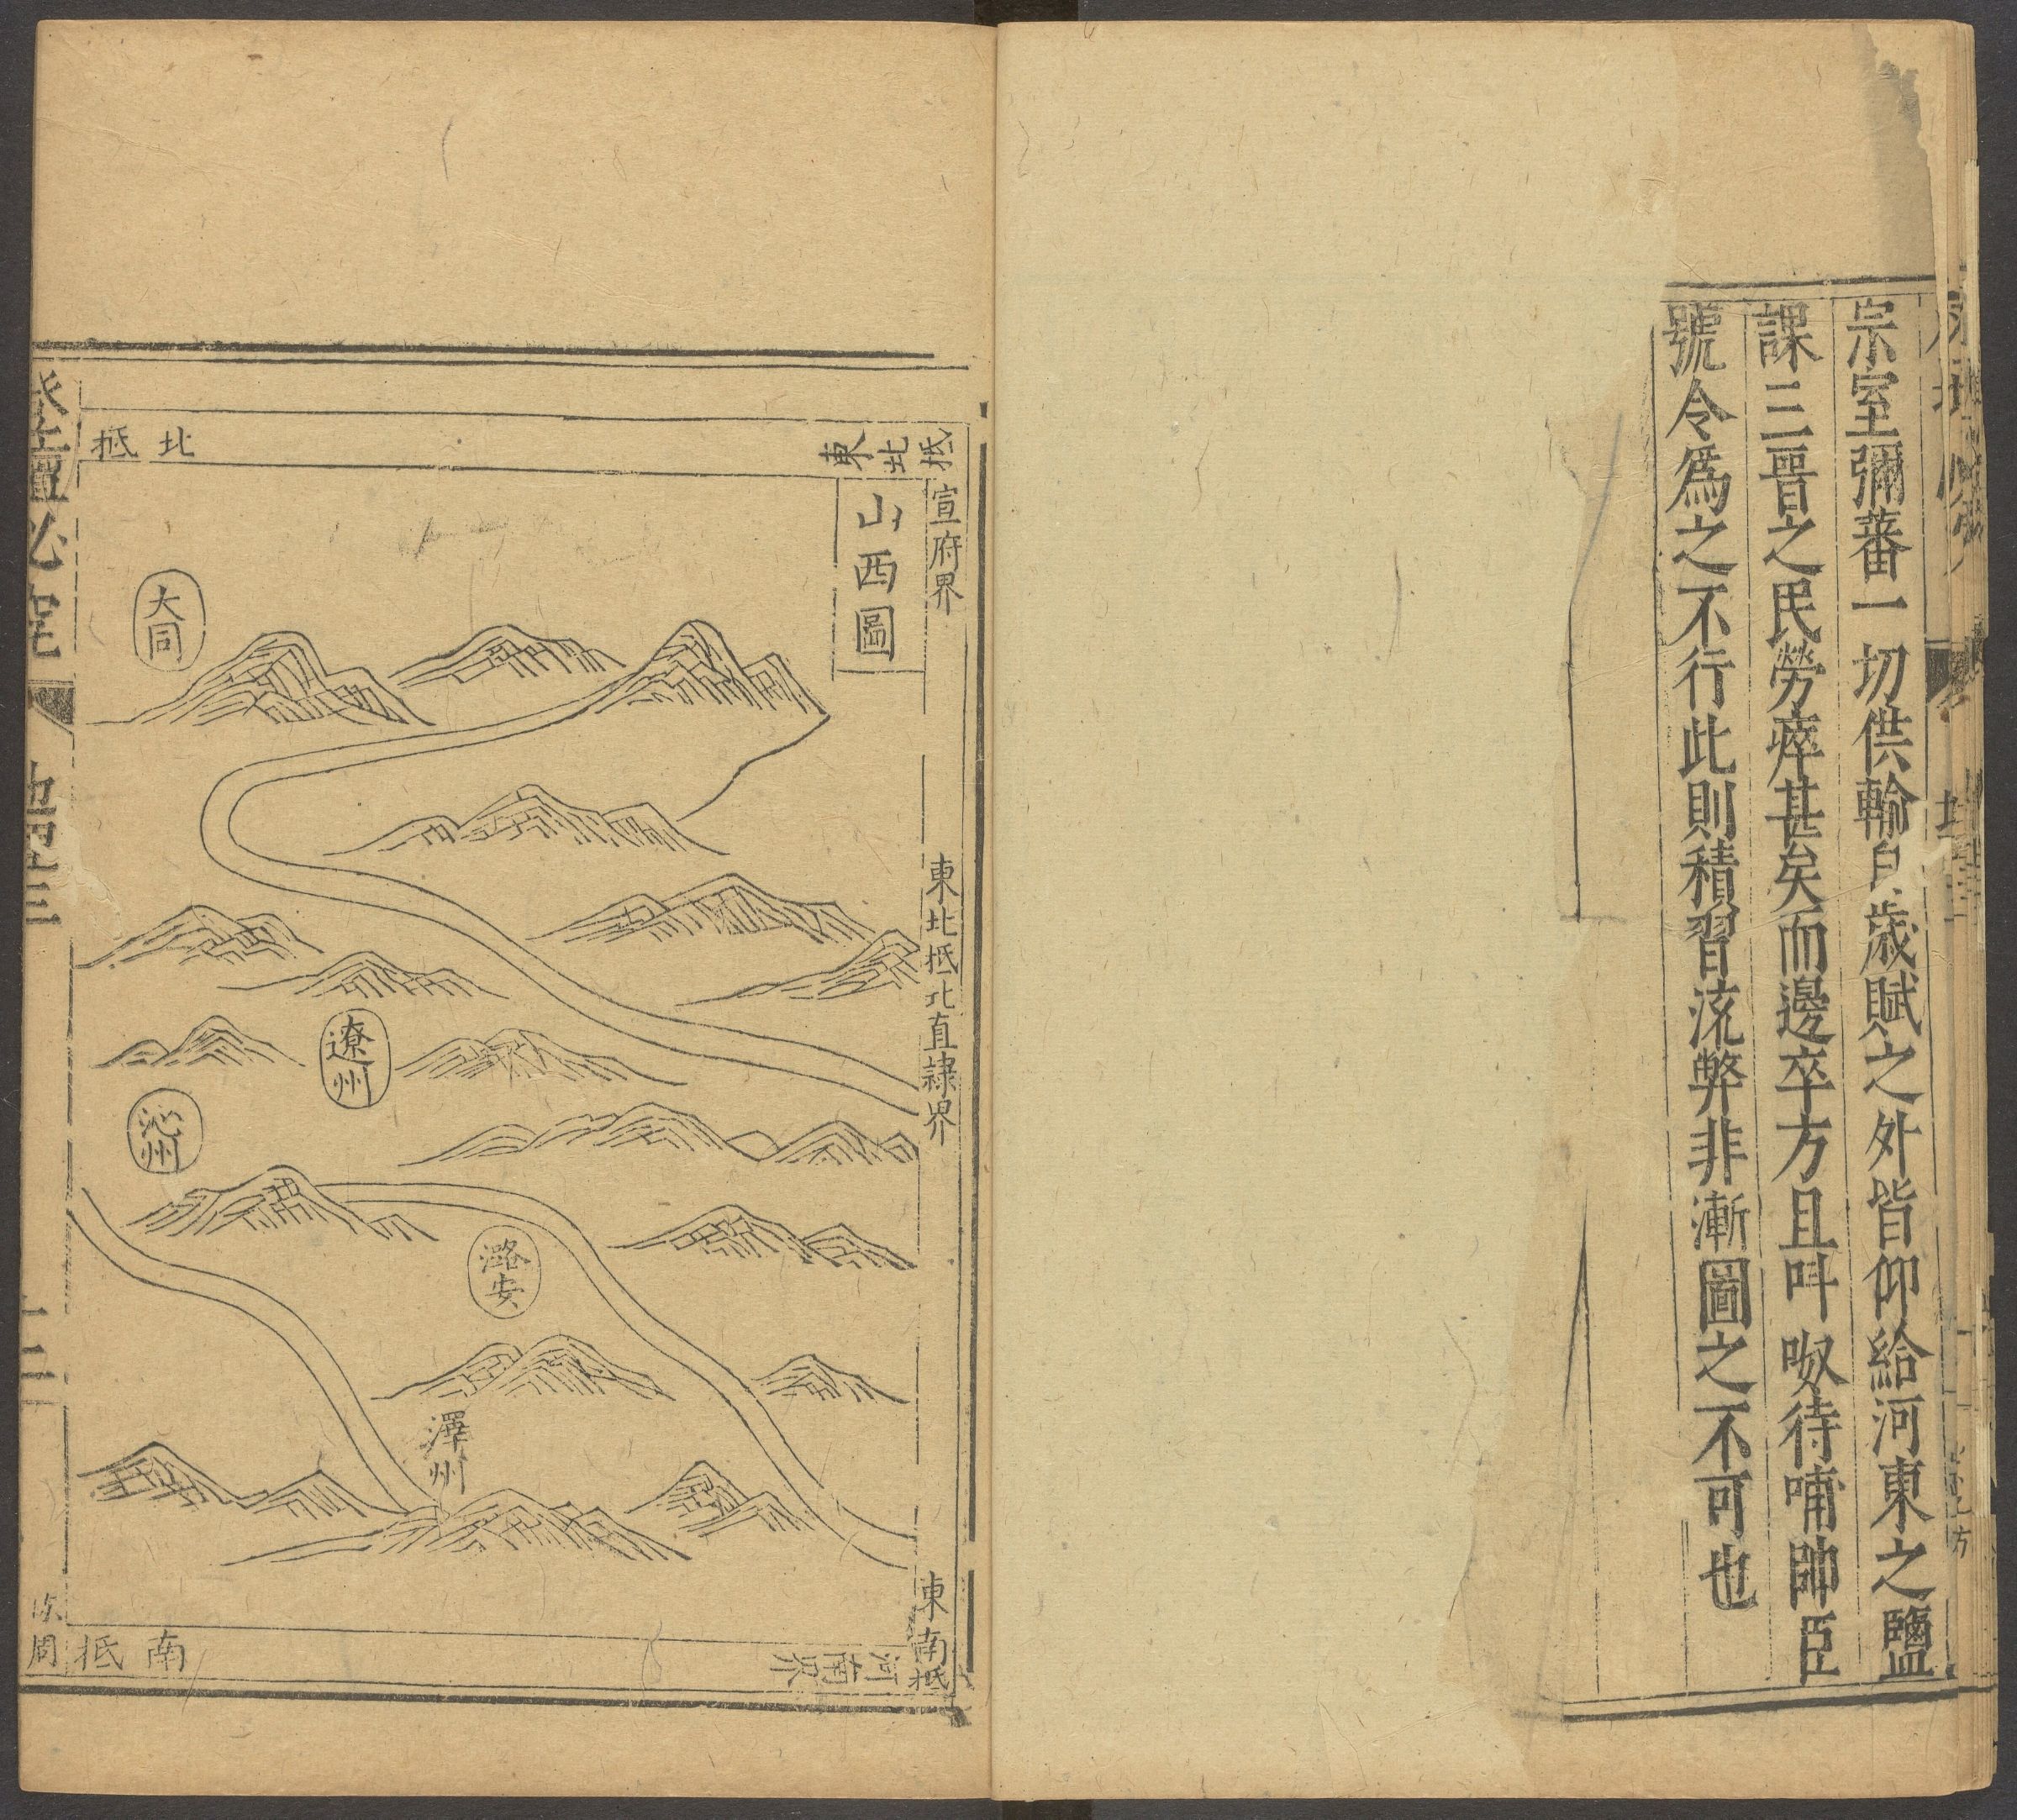 宗室彌蕃一切供輸自歲賦之外皆仰給河東之鹽
課三晉之民勞瘁甚矣而邊卒方且叫呶待哺帥臣
號令爲之不行此則積習流弊非漸圖之不可也
山西圖
東北抵
宣府界
東北抵北直隷界
東南抵
河南界
北抵
南抵
大同
遼州
沁州
潞安
澤州
登壇必究
地四卷三
十三
周